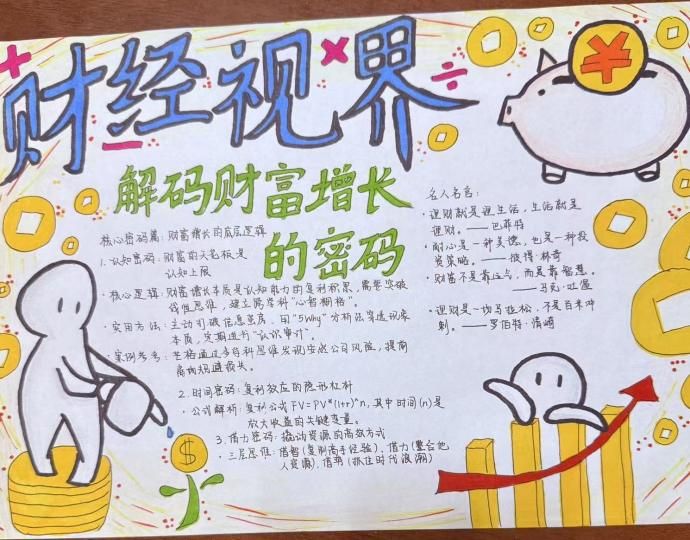 财经视界
解码财富增长
的密码
核心密码篇：财富增长的底层逻辑
1.认知密码：财富的天花板是
认知上限
·核心逻辑：财富增长本质是认知能力的复利积累，需要突破
线性思维，建立跨学科“心智栅格”。
·实用方法：主动打破信息茧房，用“5Why”分析法穿透现象
本质，定期进行“认识审计”。
·案例参考：芒格通过多学科思维发现安然公司风险，提前
2.时间密码：复利效应的隐形杠杆
·公式解析：复利公式FV=PV*(1+r)^n，其中时间(n)是
放大收益的关键变量。
3.借力密码：撬动资源的高效方式
·三层思维：借智(复制高手经验)、借力(整合他
人资源)、借势(抓住时代浪潮)
名人名言：
·理财就是理生活，生活就是
理财。——巴菲特
·耐心是一种美德，也是一种投
资策略。——彼得·林奇
·财富不是靠运气，而是靠智慧。
——马克·吐温
·理财是一场马拉松，不是百米冲
刺。——罗伯特·清崎
¥
$